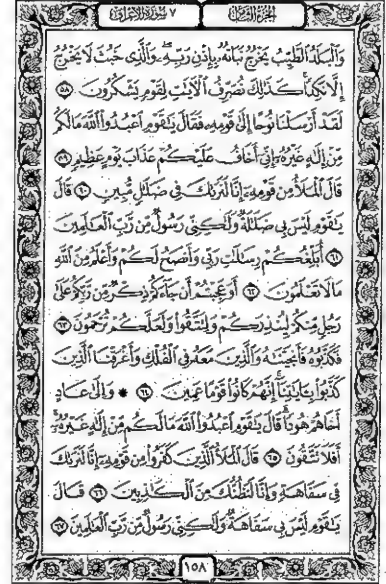 الجزء الثامن ٧ سورة الأعراف
وَٱلۡبَلَدُ ٱلطَّيِّبُ يَخۡرُجُ نَبَاتُهُۥ بِإِذۡنِ رَبِّهِۦۖ وَٱلَّذِي خَبُثَ لَا يَخۡرُجُ
إِلَّا نَكِدٗاۚ كَذَٰلِكَ نُصَرِّفُ ٱلۡأٓيَٰتِ لِقَوۡمٖ يَشۡكُرُونَ ٥٨
لَقَدۡ أَرۡسَلۡنَا نُوحًا إِلَىٰ قَوۡمِهِۦ فَقَالَ يَٰقَوۡمِ ٱعۡبُدُواْ ٱللَّهَ مَا لَكُم
مِّنۡ إِلَٰهٍ غَيۡرُهُۥٓ إِنِّيٓ أَخَافُ عَلَيۡكُمۡ عَذَابَ يَوۡمٍ عَظِيمٖ ٥٩
قَالَ ٱلۡمَلَأُ مِن قَوۡمِهِۦٓ إِنَّا لَنَرَىٰكَ فِي ضَلَٰلٖ مُّبِينٖ ٦٠ قَالَ
يَٰقَوۡمِ لَيۡسَ بِي ضَلَٰلَةٞ وَلَٰكِنِّي رَسُولٞ مِّن رَّبِّ ٱلۡعَٰلَمِينَ
٦١ أُبَلِّغُكُمۡ رِسَٰلَٰتِ رَبِّي وَأَنصَحُ لَكُمۡ وَأَعۡلَمُ مِنَ ٱللَّهِ
مَا لَا تَعۡلَمُونَ ٦٢ أَوَعَجِبۡتُمۡ أَن جَآءَكُمۡ ذِكۡرٞ مِّن رَّبِّكُمۡ عَلَىٰ
رَجُلٖ مِّنكُمۡ لِيُنذِرَكُمۡ وَلِتَتَّقُواْ وَلَعَلَّكُمۡ تُرۡحَمُونَ ٦٣
فَكَذَّبُوهُ فَأَنجَيۡنَٰهُ وَٱلَّذِينَ مَعَهُۥ فِي ٱلۡفُلۡكِ وَأَغۡرَقۡنَا ٱلَّذِينَ
كَذَّبُواْ بِـَٔايَٰتِنَآۚ إِنَّهُمۡ كَانُواْ قَوۡمًا عَمِينَ ٦٤ ۞ وَإِلَىٰ عَادٍ
أَخَاهُمۡ هُودٗاۚ قَالَ يَٰقَوۡمِ ٱعۡبُدُواْ ٱللَّهَ مَا لَكُم مِّنۡ إِلَٰهٍ غَيۡرُهُۥٓۚ
أَفَلَا تَتَّقُونَ ٦٥ قَالَ ٱلۡمَلَأُ ٱلَّذِينَ كَفَرُواْ مِن قَوۡمِهِۦٓ إِنَّا لَنَرَىٰكَ
فِي سَفَاهَةٖ وَإِنَّا لَنَظُنُّكَ مِنَ ٱلۡكَٰذِبِينَ ٦٦ قَالَ
يَٰقَوۡمِ لَيۡسَ بِي سَفَاهَةٞ وَلَٰكِنِّي رَسُولٞ مِّن رَّبِّ ٱلۡعَٰلَمِينَ ٦٧
١٥٨